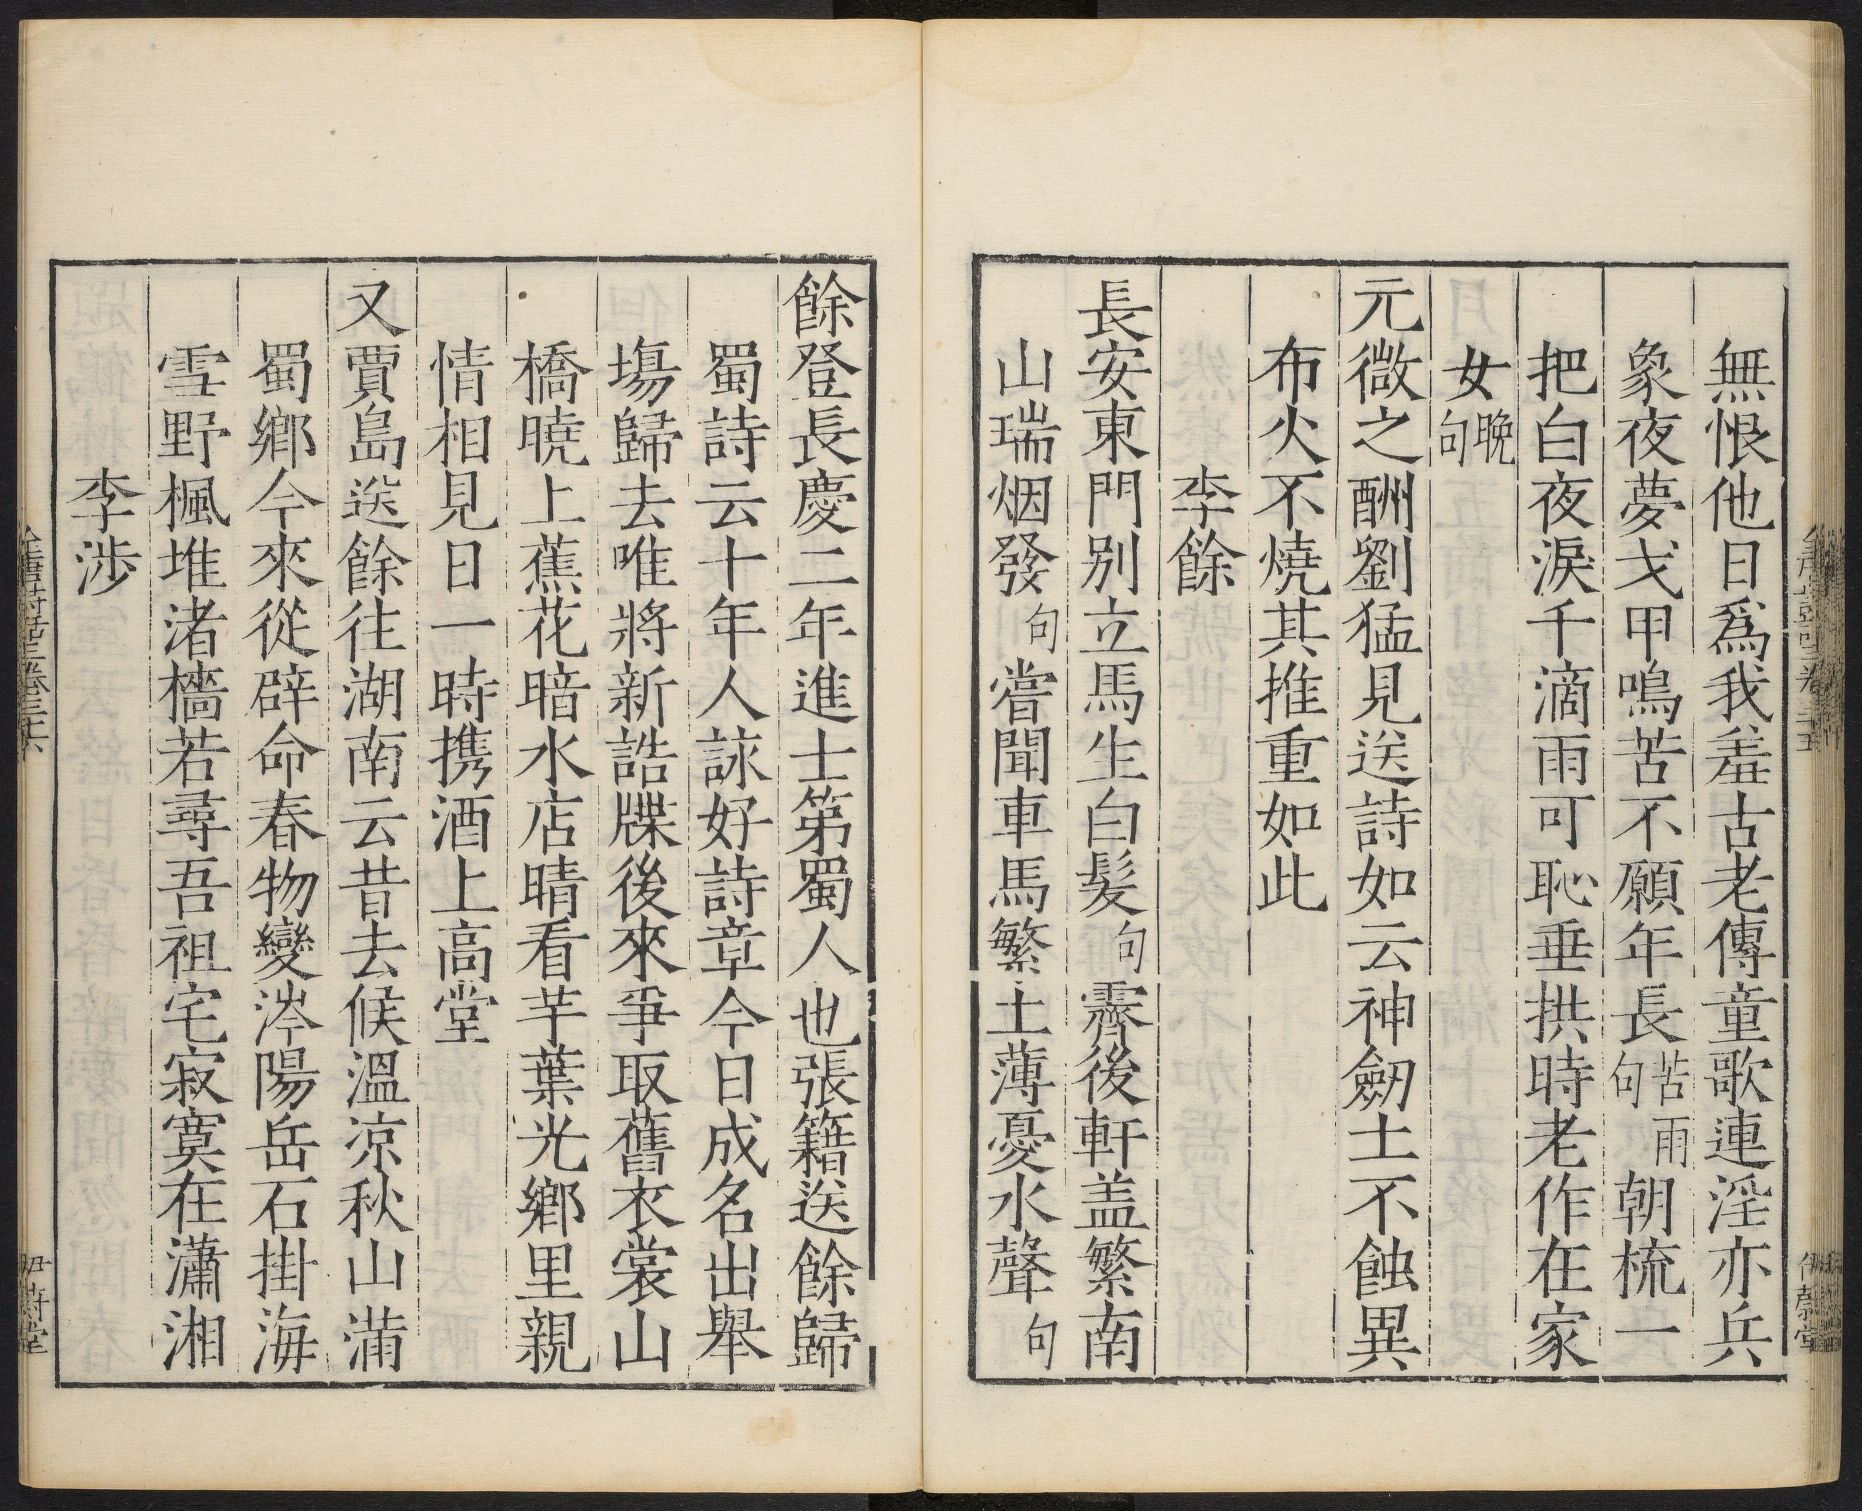 無恨他日爲我羞古老傳童歌連淫亦兵
象夜夢戈甲鳴苦不願年長苦雨句朝梳一
把白夜淚千滴雨可恥垂拱時老作在家
女晩句
元微之酬劉猛見送詩如云神劒土不蝕異
布火不燒其推重如此
李餘
長安東門别立馬生白髮句霽後軒盖繁南
山瑞烟發句嘗聞車馬繁土薄憂水聲句
餘登長慶二年進士第蜀人也張籍送餘歸
蜀詩云十年人詠好詩章今日成名出舉
塲歸去唯將新誥牒後來爭取舊衣裳山
橋曉上蕉花暗水店晴看芋葉光鄉里親
情相見日一時携酒上高堂
又賈島送餘往湖南云昔去候溫凉秋山滿
蜀鄉今來從辟命春物變涔陽岳石掛海
雪野楓堆渚檣若尋吾祖宅寂寞在瀟湘
李涉